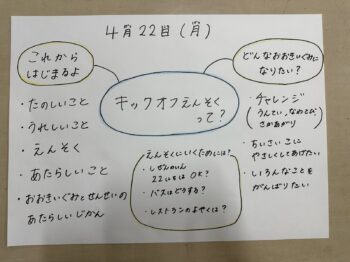 4月22日(月)
これから
はじまるよ
・たのしいこと
・うれしいこと
・えんそく
・あたらしいこと
・おおきいぐみとせんせいの
あたらしいじかん
キックオフえんそく
って?
えんそくにいくためには?
・しぜんのいえ
22にちは OK?
・バスはどうする?
・レストランのよやくは?
どんなおおきいぐみに
なりたい?
・チャレンジ
(うんてい,なわとび,
さかあがり)
・ちいさいこに
やさしくしてあげたい
・いろんなことを
がんばりたい